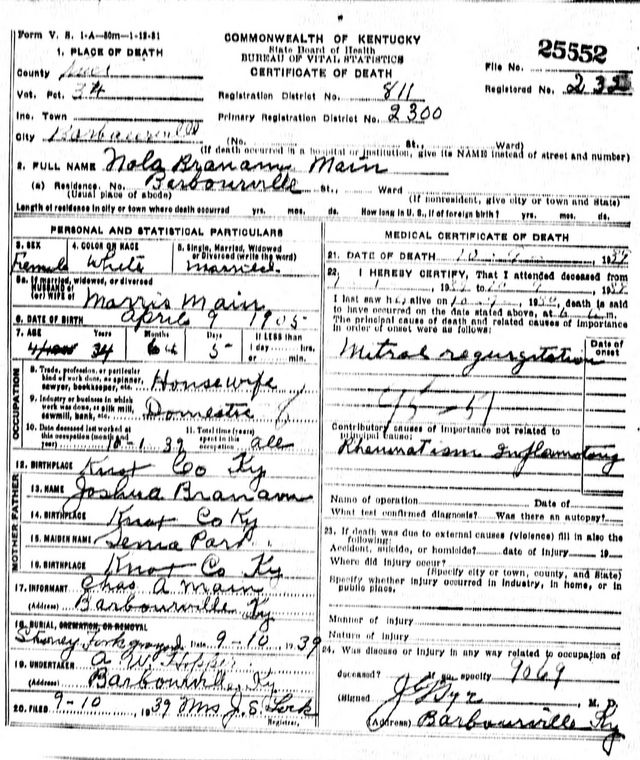 Form V. S. 1-A—80m—1-12-31
COMMONWEALTH OF KENTUCKY
State Board of Health
BUREAU OF VITAL STATISTICS
CERTIFICATE OF DEATH
25552
File No.
Registered No. 232
1. PLACE OF DEATH
County
Vot. Pct. 34
Inc. Town
City Barbourville
Registration District No. 811
Primary Registration District No. 2300
(No. St., Ward)
(If death occurred in a hospital or institution, give its NAME instead of street and number)
2. FULL NAME Nola Branam Main
(a) Residence. No. Barbourville St., Ward
(Usual place of abode) (If nonresident, give city or town and State)
Length of residence in city or town where death occurred yrs. mos. ds. How long in U. S., if of foreign birth? yrs. mos. ds.
PERSONAL AND STATISTICAL PARTICULARS
3. SEX 4. COLOR OR RACE 5. Single, Married, Widowed
or Divorced (write the word)
Female White Married
5a. If married, widowed, or divorced
HUSBAND of
(or) WIFE of Morris Main
6. DATE OF BIRTH April 9 1905
7. AGE Years Months Days If LESS than
34 5 1 day hrs.
or min.
OCCUPATION
8. Trade, profession, or particular
kind of work done, as spinner,
sawyer, bookkeeper, etc. Housewife
9. Industry or business in which
work was done, as silk mill,
sawmill, bank, etc. Domestic
10. Date deceased last worked at
this occupation (month and
year) 10-1-39
11. Total time (years)
spent in this
occupation all
12. BIRTHPLACE Knot Co Ky
MOTHER FATHER
13. NAME Joshua Branam
14. BIRTHPLACE Knot Co Ky
15. MAIDEN NAME
16. BIRTHPLACE Knot Co Ky
17. INFORMANT Chas A Main
(Address) Barbourville Ky
18. BURIAL, CREMATION, OR REMOVAL
Date 9-10 1939
19. UNDERTAKER A W Hopper
(Address) Barbourville, Ky
20. FILED 9-10 1939 Mrs J. S.
Registrar.
MEDICAL CERTIFICATE OF DEATH
21. DATE OF DEATH 19
22. I HEREBY CERTIFY, That I attended deceased from
I last saw h alive on death is said
to have occurred on the date stated above, at m.
The principal cause of death and related causes of importance
in order of onset were as follows:
Date of
onset
Mitral regurgitation
Contributory causes of importance not related to
principal cause:
Rheumatism Inflammatory
Name of operation Date of
What test confirmed diagnosis? Was there an autopsy?
23. If death was due to external causes (violence) fill in also the
following:
Accident, suicide, or homicide? date of injury 19
Where did injury occur?
(Specify city or town, county, and State)
Specify whether injury occurred in industry, in home, or in
public place.
Manner of injury
Nature of injury
24. Was disease or injury in any way related to occupation of
deceased? specify 9069
(Signed) M. D.
(Address) Barbourville Ky